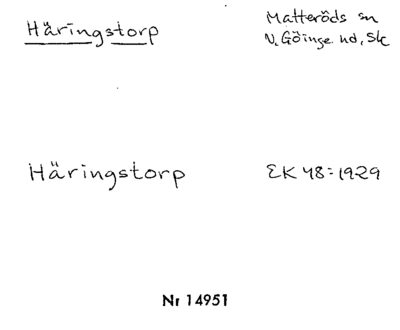 Häringstorp
Matteröds sn
V. Göinge hd, Sk
Häringstorp
EK 48:1929
Nr 14951